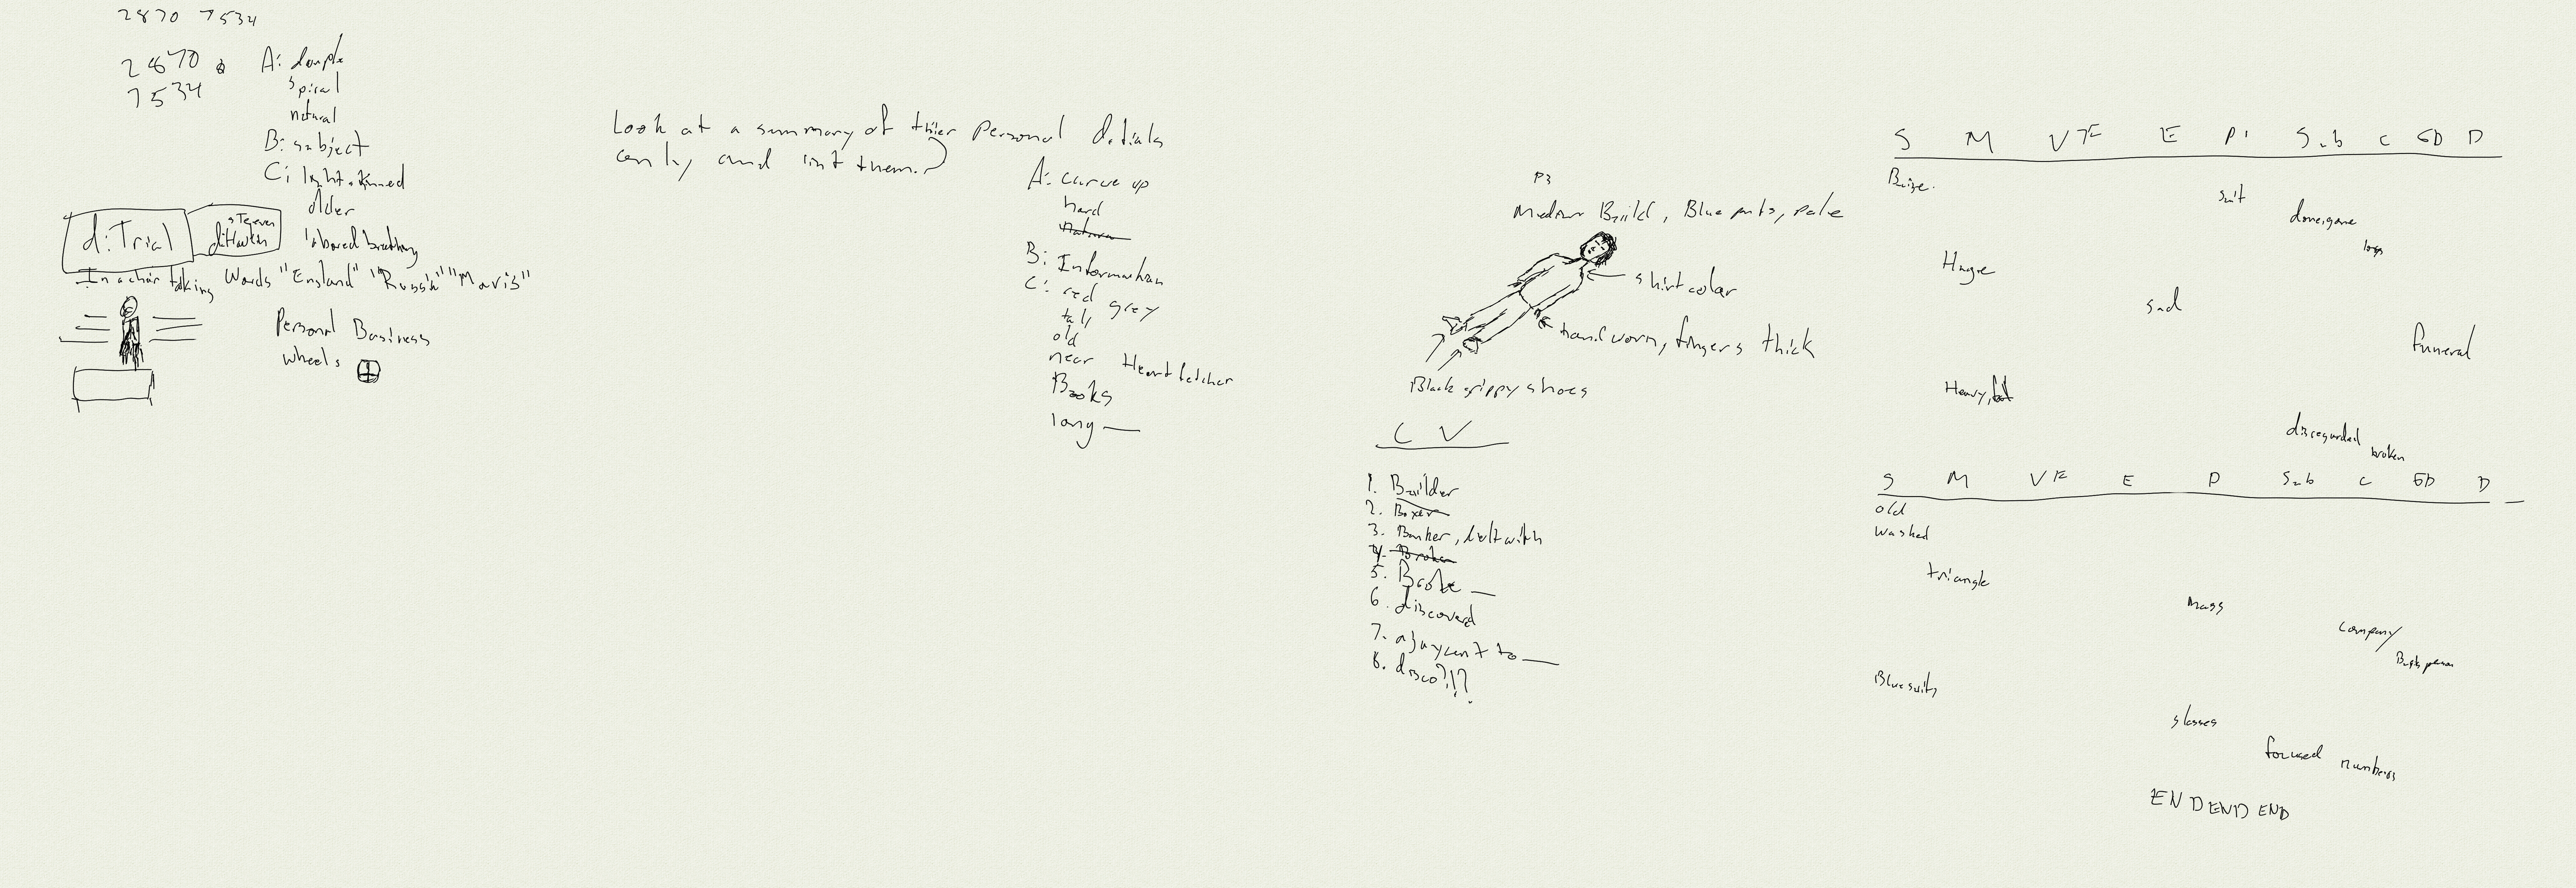 2870 7534
2870
7534
A:
spiral
natural
B: subject
C: light skinned
older
labored breathing
d: Trial
In a chair talking Words "England" "Russia" "Mavis"
Personal Business
wheels
Look at a summary of thier Personal detials
only and list them.
A: curve up
hard
B: Information
C: red grey
tall
old
near Heart fetcher
Books
long —
P3
Medium Build, Blue pnts, pale
shirt color
hand worn, fingers thick
Black grippy shoes
C V
1. Builder
2. Boxer
3. Banker, delt with
4. Broken
5.
6. discoverd
7. ajaycent to —
8. disco?!?
S M VF E P Sub C GD D
Beige.
suit
done, gone
loss
Huge
sad
funeral
Heavy,
disregarded
broken
S M VF E P Sub C GD D
old
washed
triangle
mass
company
Blue suits
glasses
focused numbers
END END END